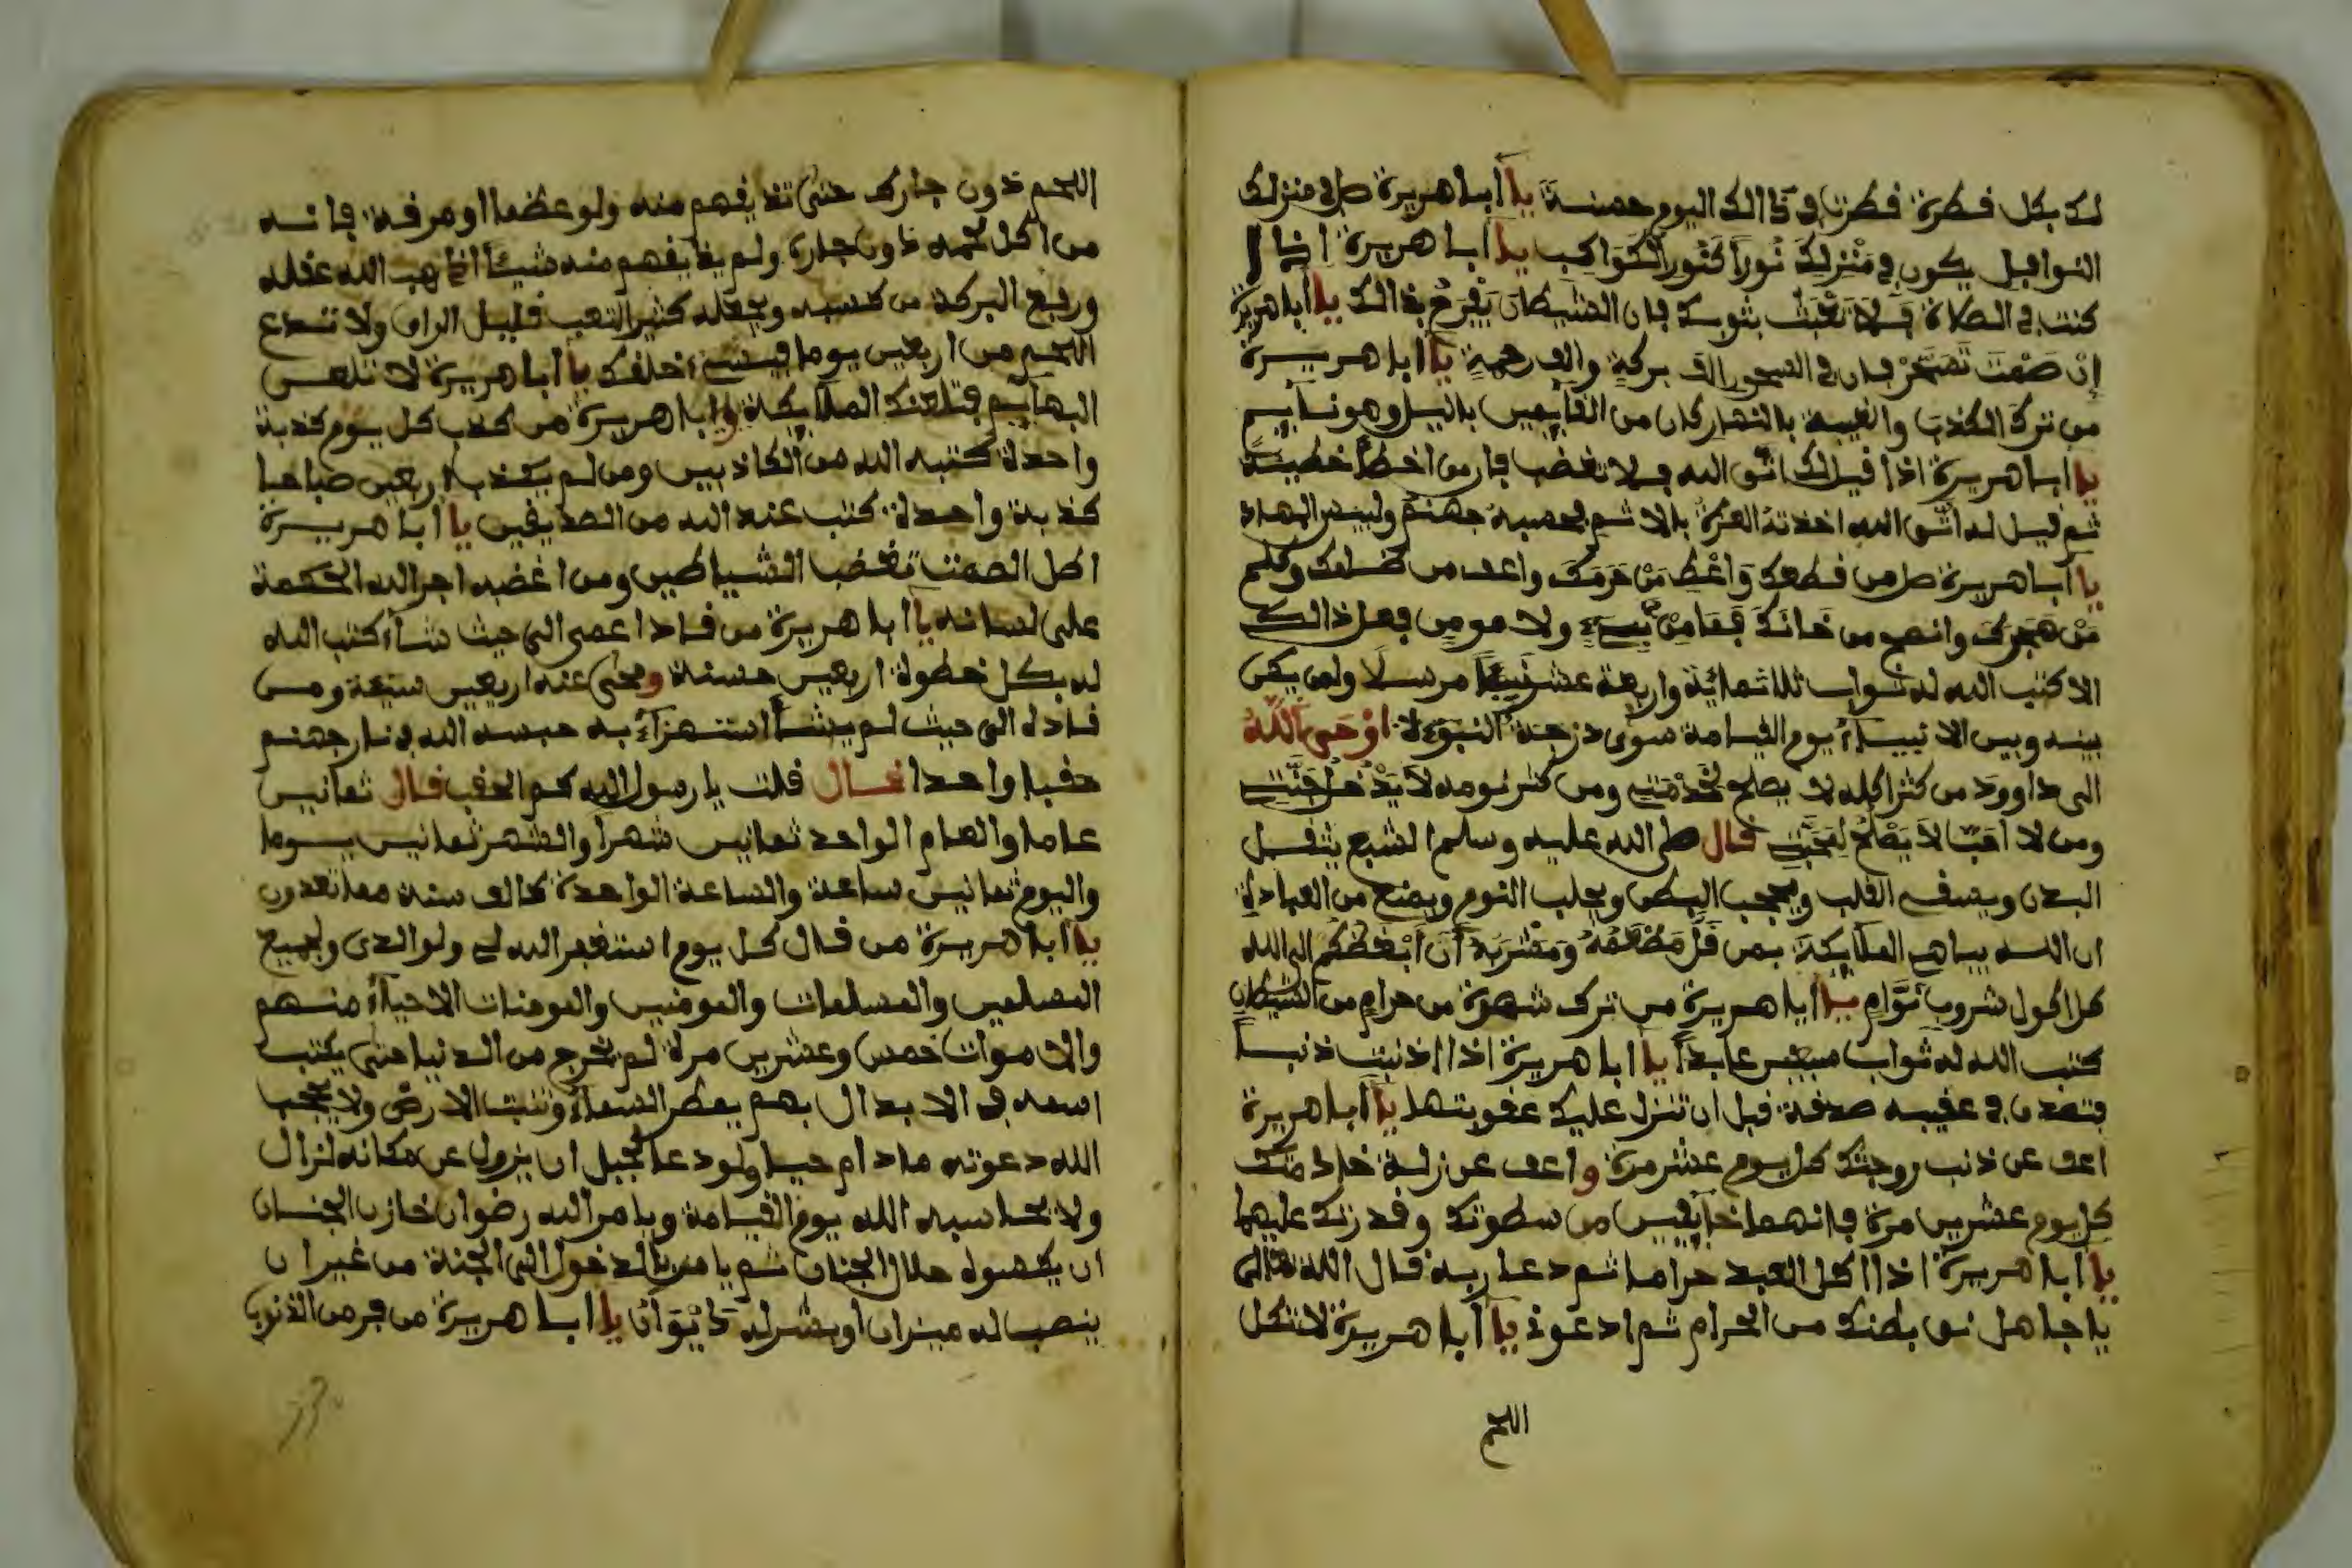 لك بكل قطرة قطرت في ذالك اليوم حسنة يا أبا هريرة صل في منزلك
النوافل يكون في مَنْزِلِكَ نُوراً كَنُورِ الْكَوَاكِبِ يا أبا هريرة إذا
كنت في الصلاة فَلاَ تَعْبَثْ بثوبك فان الشيطان يَفْرَحُ بذالك يا أبا هريرة
إن صُمْتَ تَسَحَّرْ فان في السحور الف بركةٍ والف رحمةٍ يا أبا هريرة
من ترك الكذبَ والغيبة بالنهار كان من القايمين بالليل وهو نايم
يا أبا هريرة اذا قيل لك اتق الله فلا تغضب فان من اخطأ خطيئة
ثم قيل له اتّق الله اخذته العزة بالاثم فحسبه جهنم ولبيس المهاد
يا أبا هريرة صل من قطعك وَاعْطِ مَنْ حَرَمَكَ واعف من ظلمك وكلم
مَنْ هَجَرَكَ وانصح من خَانَكَ فَمَا مِنْ نبيء ولا مومن فعل ذالك
الا كتب الله له ثواب ثلاثمائة واربعة عشر نَبِيّاً مرسلا ولم يكن
بينه وبين الانبياء يوم القيامة سوى درجة النبوءة لا أوْحَى اَللَّهُ
الى داوود من كثر اكله لا يصلح لِخِدْمَتِي ومن كثر نومه لاَ يَدْخُلُ جَنَّتِي
ومن لا اَدَبَ لاَ يَصْلُحُ لِمَحَبَّتِي قال صلى الله عليه وسلم الشبع يثقل
البدن ويقسي القلب ويحجب البطن ويجلب النوم ويمنع من العبادة
ان الله يباهي الملايكة بمن قَلَّ مَطْعَمُهُ وَمَشْرَبُهُ أن أَبْغَضُكُم الى الله
كل اكول شروب نَوَّامٍ يا أبا هريرة من ترك شهوة من حرامٍ من الشيطان
كتب الله له ثواب سبعين عابداً يا أبا هريرة اذا اذنبت ذنبا
فتصدق في عقيبه صدقة قبل ان تنزل عليك عقوبتها يا أبا هريرة
اعف عن ذنب زوجتك كل يوم عشر مرة واعف عن زلة خادمتك
كل يوم عشرين مرة فانهما خآيفين من سطوتك وقدرتك عليهما
يا أبا هريرة اذا اكل العبد حراما ثم دعا ربه قال الله تعالى
يا جاهل نق بطنك من الحرام ثم ادعوني يا أبا هريرة لا تاكل
اللحم
اللحم دون جارك حتى تذيقهم منه ولو عظما او مرقة فانه
من اكل لحمه دون جاره ولم يذيقهم منه شيئاً اذهب الله عقله
ورفع البركة من كسبه ويجعله كثير التعب قليل الراي ولا تدع
اللحم من اربعين يوما فيسيء خلقك يا أبا هريرة لا تلعن
البهايم فتلعنك الملايكة وابا هريرة من كذب كل يوم كذبة
واحدة كتبه الله من الكاذبين ومن لم يكذب اربعين صباحا
كذبة واحدة كتب عند الله من الصديقين يا أبا هريرة
اطل الصمت تغضب الشياطين ومن اغضبه اجرا الله الحكمة
على لسانه يا أبا هريرة من قاد اعمى الى حيث شاء كتب الله
له بكل خطوة اربعين حسنة ومحى عنه اربعين سيئة ومن
قاده الى حيث لم يشأ استهزاء به حبسه الله في نار جهنم
حقبا واحدا فقال قلت يا رسول الله كم الحقب قال ثمانين
عاما والعام الواحد ثمانين شهرا والشهر ثمانين يوما
واليوم ثمانين ساعة والساعة الواحدة كالف سنة مما تعدون
يا أبا هريرة من قال كل يوم استغفر الله لي ولوالدي ولجميع
المسلمين والمسلمات والمومنين والمومنات الاحياء منهم
والاموات خمس وعشرين مرة لم يخرج من الدنيا حتى يكتب
اسمه في الابدال بهم يمطر السماء وتنبت الارض ولا يحجب
الله دعوته مادام حيا ولو دعا لجبل ان يزول عن مكانه لزال
ولا يحاسبه الله يوم القيامة ويامر الله رضوان خازن الجنان
ان يكسوه حلل الجنان ثم يامره بالدخول الى الجنة من غير ان
ينصب له ميزان او ينشر له دِيْوَانٌ يا أبا هريرة من فر من الذنوب